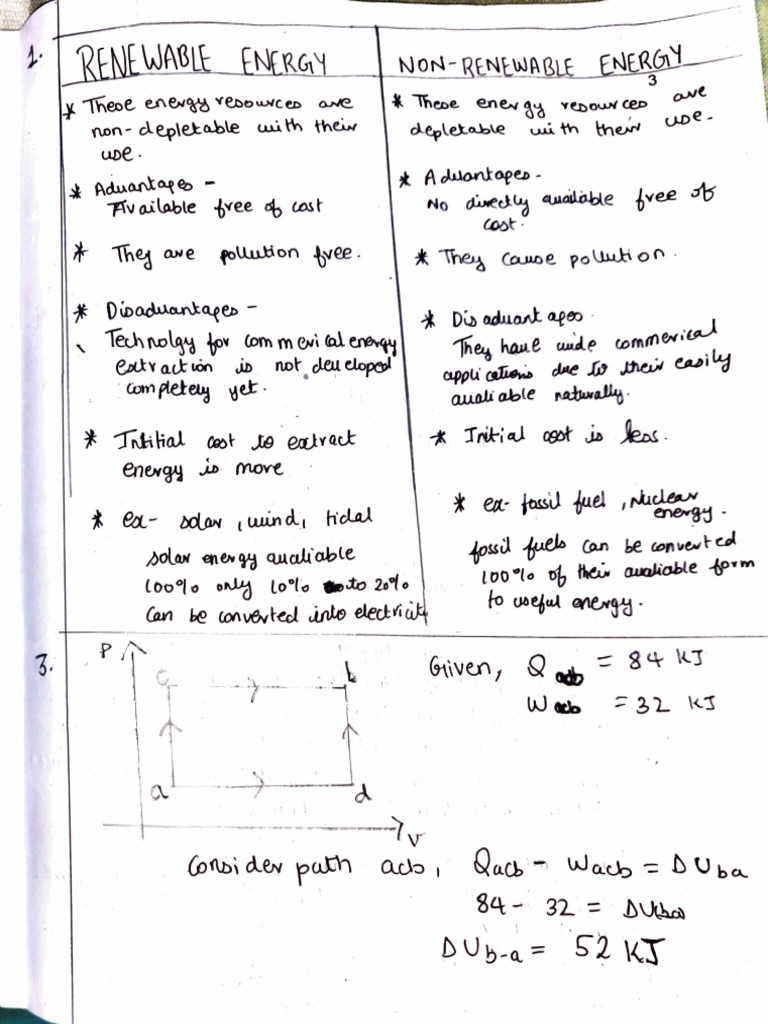 1.
RENEWABLE ENERGY
* These energy resources are
non-depletable with their
use.
* Advantages -
Available free of cost
* They are pollution free.
* Disadvantages -
Technolgy for commerical energy
extraction is not developed
completely yet.
* Intitial cost to extract
energy is more
* ex- solar, wind, tidal
solar energy avaliable
100% only 10% to 20%
can be converted into electricity
NON-RENEWABLE ENERGY
3
* These energy resources are
depletable with their use.
* Advantages -
No directly available free of
cost.
* They cause pollution.
* Disadvantages.
They have wide commerical
applications due to their easily
avaliable naturally.
* Initial cost is less.
* ex- fossil fuel, Nuclear
energy.
fossil fuels can be converted
100% of their avaliable form
to useful energy.
3.
P
c b
a d
V
Given, Q acb = 84 KJ
W acb = 32 KJ
Consider path acb, Qacb - Wacb = ΔU ba
84 - 32 = ΔU(ba)
ΔU b-a = 52 KJ